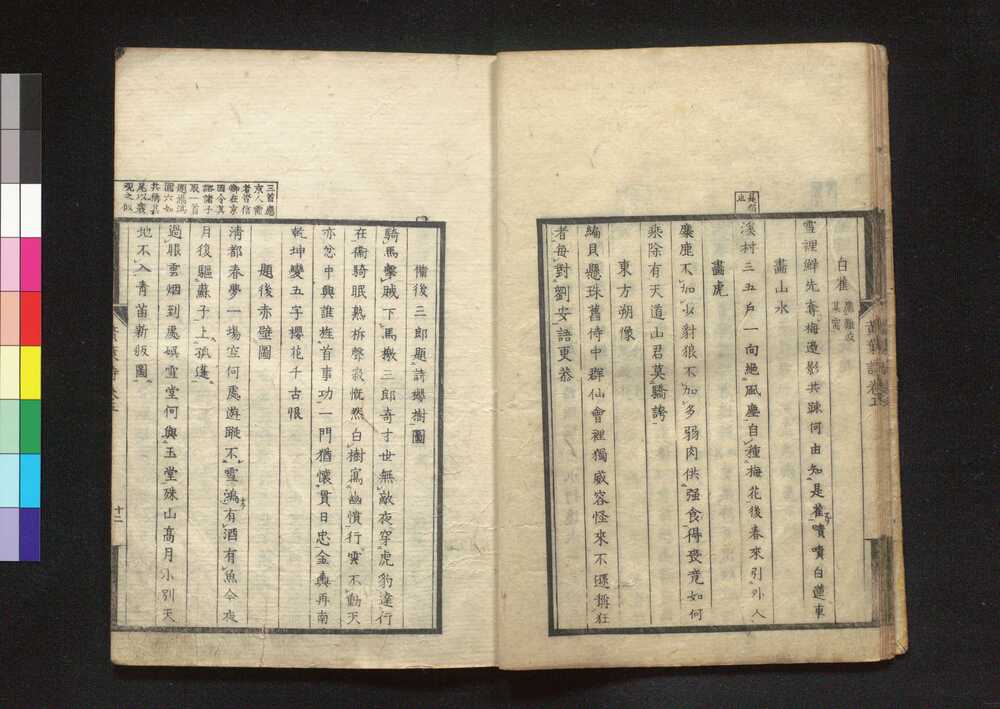 白雀
雪裡鮮先奪梅邊影共疎何由知是雀嘖嘖白蓮車
畵山水
溪村三五戶一向絕風塵自種梅花後春來引外人
畵虎
麋鹿不加少豺狼不加多弱肉供强食得喪竟如何
乘除有天道山君莫驕誇
東方朔像
編貝懸珠舊侍中群仙會裡獨威容怪來不還稱狂
者每對劉安語更恭
備後三郎題詩櫻樹圖
騎馬擊賊下馬檄三郎奇才世無敵夜穿虎豹達行
在衞騎眠熟柝聲寂慨然白樹寫幽憤行雲不動天
亦忿中興誰旌首事功一門猶懷貫日忠金輿再南
乾坤變五字櫻花千古恨
題後赤壁圖
清都春夢一場空何處遊蹤不雪鴻有酒有魚今夜
月後驅蘇子上孤篷
過眼雲烟到處娯雪堂何與玉堂殊山高月小別天
地不入青苗新版圖
十二
三首應